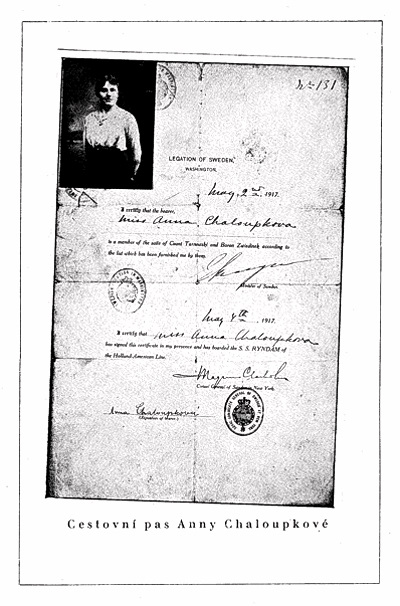 No 131
LEGATION OF SWEDEN,
WASHINGTON.
May 2nd 1917.
I certify that the bearer,
Miss Anna Chaloupkova
is a member of the suite of Count Tarnowski and Baron Zwiedinek according to
the list which has been furnished me by them.
Minister of Sweden
May 4th, 1917.
I certify that Miss Anna Chaloupkova
has signed this certificate in my presence and has boarded the S. S. RYNDAM of
the Holland-American Line.
Consul General of Sweden in New York.
Anna Chaloupková
(Signature of Bearer)
Cestovní pas Anny Chaloupkové